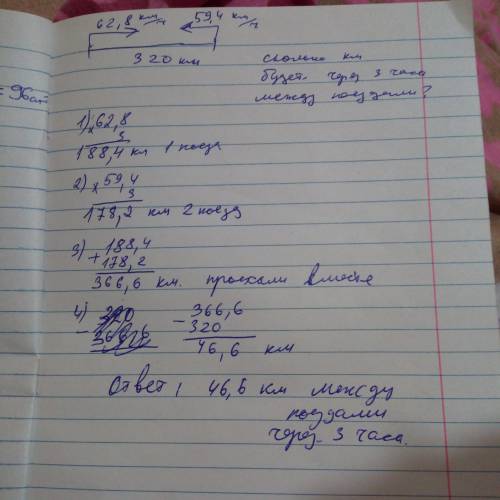 62,8 км/ч 59,4 км/ч
320 км
сколько км
будет через 3 часа
между поездами?
= 96
1) × 62,8
3
188,4 км 1 поезд
2) × 59,4
3
178,2 км 2 поезд
3) 188,4
+ 178,2
366,6 км. проехали вместе
4) 320
- 366,6
- 366,6
320
46,6 км
Ответ: 46,6 км между
поездами
через 3 часа.